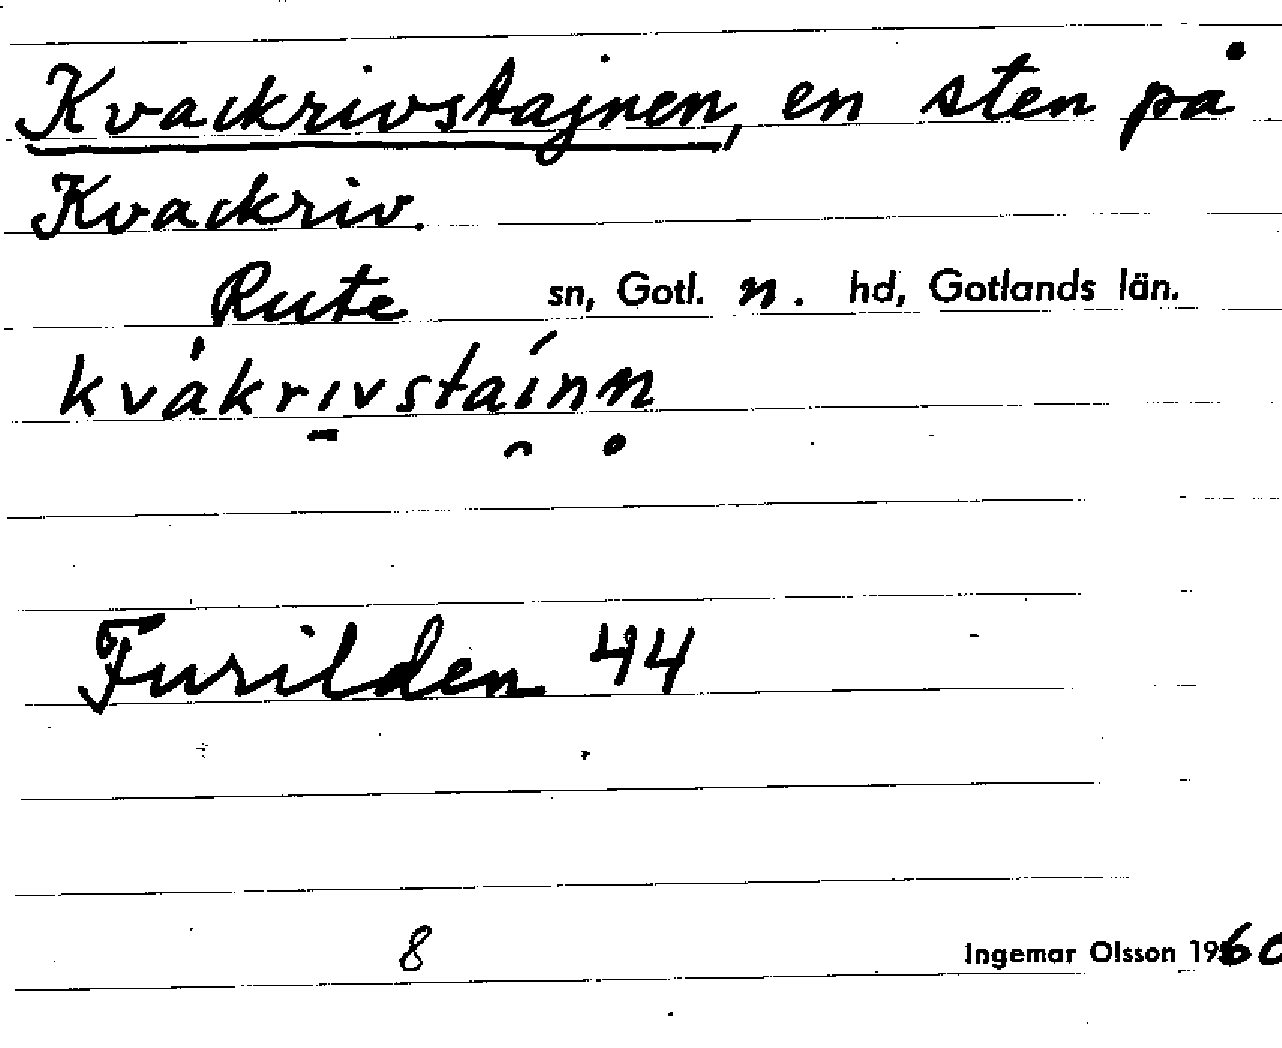 Kvackrivstajnen, en sten på
Kvackriv.
Rute sn, Gotl. n. hd, Gotlands län.
kvȧkrı̱vstaı̯́nn̥
Furilden 44
8
Ingemar Olsson 1960